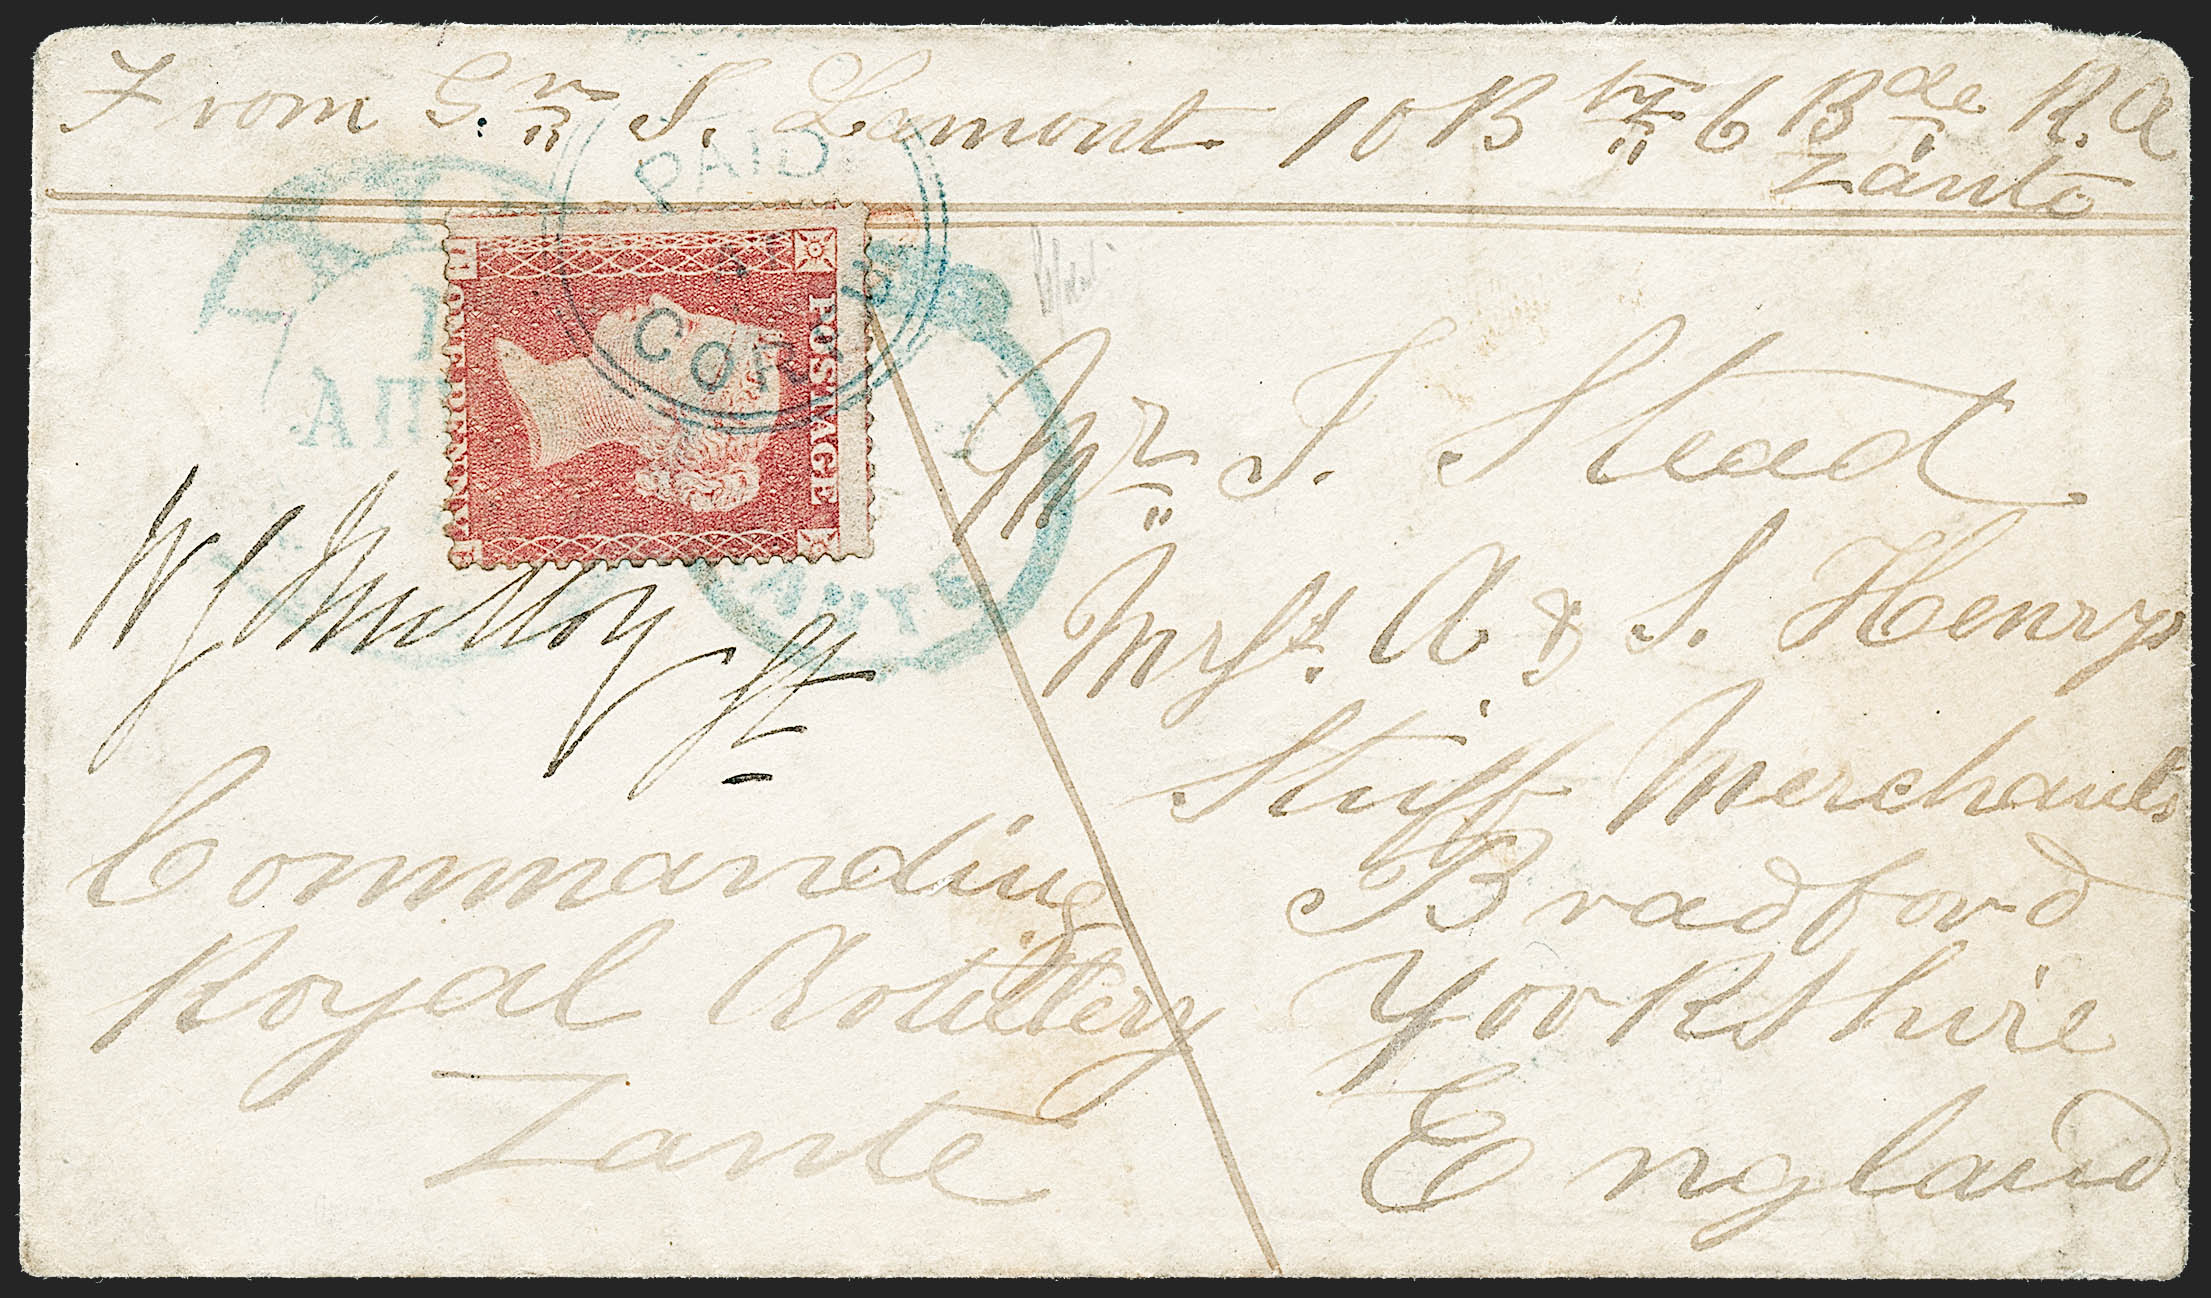 From Gnr S. Lamont 10 Bty 6 Bde R.A
Zante
PAID
CORFU
POSTAGE
ONE PENNY
Mr J. Stead
Messrs A & S. Henry
Stuff Merchants
Bradford
Yorkshire
England
Lt
Commanding
Royal Artillery
Zante